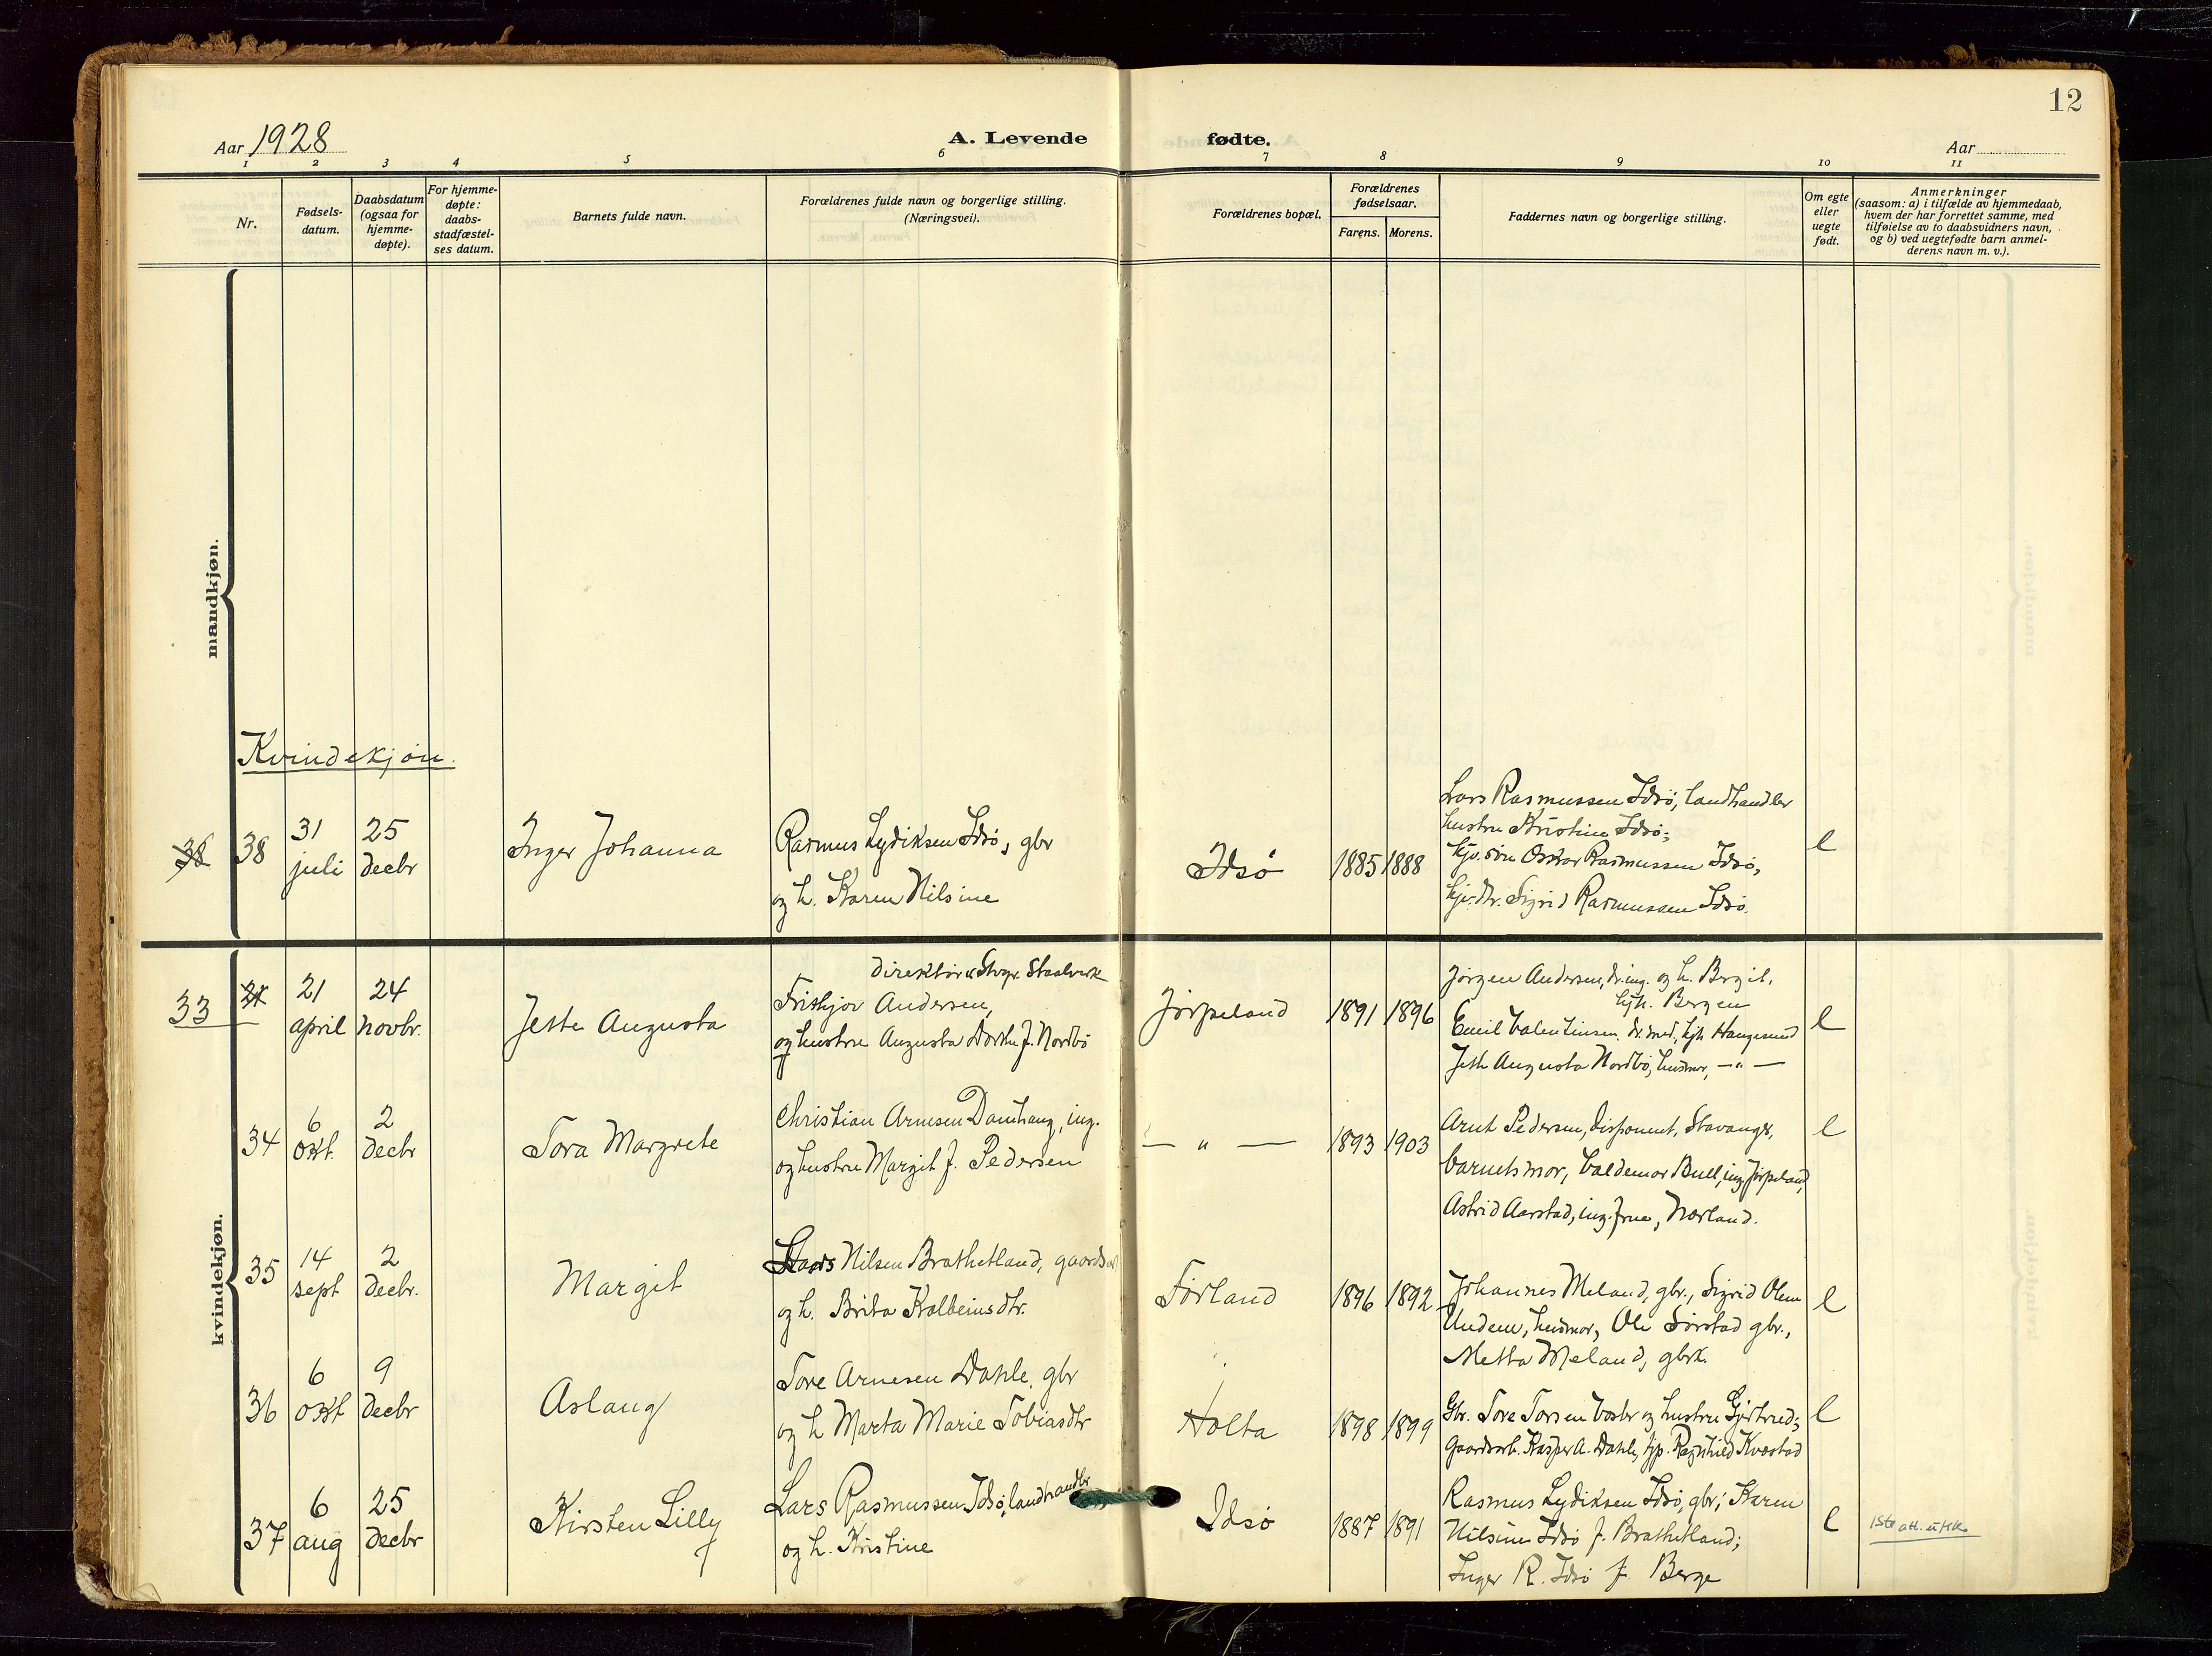 12
Aar 1928
A. Levende
fødte.
Aar
1 2 3 4 5 6 7 8 9 10 11
Nr.
Fødsels-
datum.
Daabsdatum
(ogsaa for
hjemme-
døpte).
For hjemme-
døpte:
daabs-
stadfæstel-
ses datum.
Barnets fulde navn.
Forældrenes fulde navn og borgerlige stilling.
(Næringsvei).
Forældrenes bopæl.
Forældrenes
fødselsaar.
Farens. Morens.
Faddernes navn og borgerlige stilling.
Om egte
eller
uegte
født.
Anmerkninger
(saasom: a) i tilfælde av hjemmedaab,
hvem der har forrettet samme, med
tilføielse av to daabsvidners navn,
og b) ved uegtefødte barn anmel-
derens navn m. v.).
mandkjøn.
Kvindekjøn.
38 38
31
juli
25
decbr
Inger Johanna
Rasmus Lydiksen Idsø, gbr
og h. Karen Nilsine
Idsø
1885 1888
Lars Rasmussen Idsø, landhandler
hustru Kristine Idsø;
hjv. søn Oskar Rasmussen Idsø,
hjv. dtr. Sigrid Rasmussen Idsø.
e
kvindekjøn.
33
21
april
24
novbr.
Jette Augusta
direktør v. Stvgr. Staalverk
Frithjov Andersen,
og hustru Augusta Dorthe f. Nordbø
Jørpeland
1891 1896
Jørgen Andersen, dr. ing. og h. Bergit,
hjh. Bergen
Emil Valentinsen, dr. med., hjh Haugesund
Jette Augusta Nordbø, husmor, —"—
e
34
6
okt.
2
decbr
Tora Margrete
Christian Arnesen Damhaug, ing.
og hustru Margit f. Pedersen
— " —
1893 1903
Arnt Pedersen, disponent, Stavanger,
barnets mor, Valdemar Bull, ing. Jørpeland,
Astrid Aarstad, ing. frue, Nærland.
e
35
14
sept
2
decbr.
Margit
Lars Nilsen Brathetland, gaardsar
og h. Brita Kolbeinsdtr.
Førland
1896 1892
Johannes Meland, gbr., Sigrid Olene
Undem, husmor, Ole Sørstad gbr.,
Metta Meland, gbrk.
e
36
6
okt
9
decbr
Aslaug
Tore Arnesen Dahle, gbr
og h Marta Marie Tobiasdtr
Holta
1898 1899
Gbr. Tore Torsen og hustru Gjertrud;
Gaardsarb. Kasper A. Dahle, tjp. Ragnhild Kvæstad
e
37
6
aug
25
decbr
Kirsten Lilly
Lars Rasmussen Idsø, landhandler
og h. Kristine
Idsø
1887 1891
Rasmus Lydiksen Idsø, gbr; Karen
Nilsine Idsø f. Brathetland;
Inger R. Idsø f. Berge
e